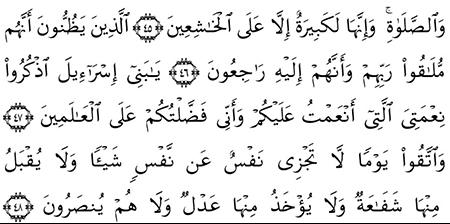 وَٱلصَّلَوٰةِۚ وَإِنَّهَا لَكَبِيرَةٌ إِلَّا عَلَى ٱلْخَـٰشِعِينَ ﴿٤٥﴾ ٱلَّذِينَ يَظُنُّونَ أَنَّهُم
مُّلَـٰقُوا۟ رَبِّهِمْ وَأَنَّهُمْ إِلَيْهِ رَٰجِعُونَ ﴿٤٦﴾ يَـٰبَنِىٓ إِسْرَٰٓءِيلَ ٱذْكُرُوا۟
نِعْمَتِىَ ٱلَّتِىٓ أَنْعَمْتُ عَلَيْكُمْ وَأَنِّى فَضَّلْتُكُمْ عَلَى ٱلْعَـٰلَمِينَ ﴿٤٧﴾
وَٱتَّقُوا۟ يَوْمًا لَّا تَجْزِى نَفْسٌ عَن نَّفْسٍ شَيْـًٔا وَلَا يُقْبَلُ
مِنْهَا شَفَـٰعَةٌ وَلَا يُؤْخَذُ مِنْهَا عَدْلٌ وَلَا هُمْ يُنصَرُونَ ﴿٤٨﴾